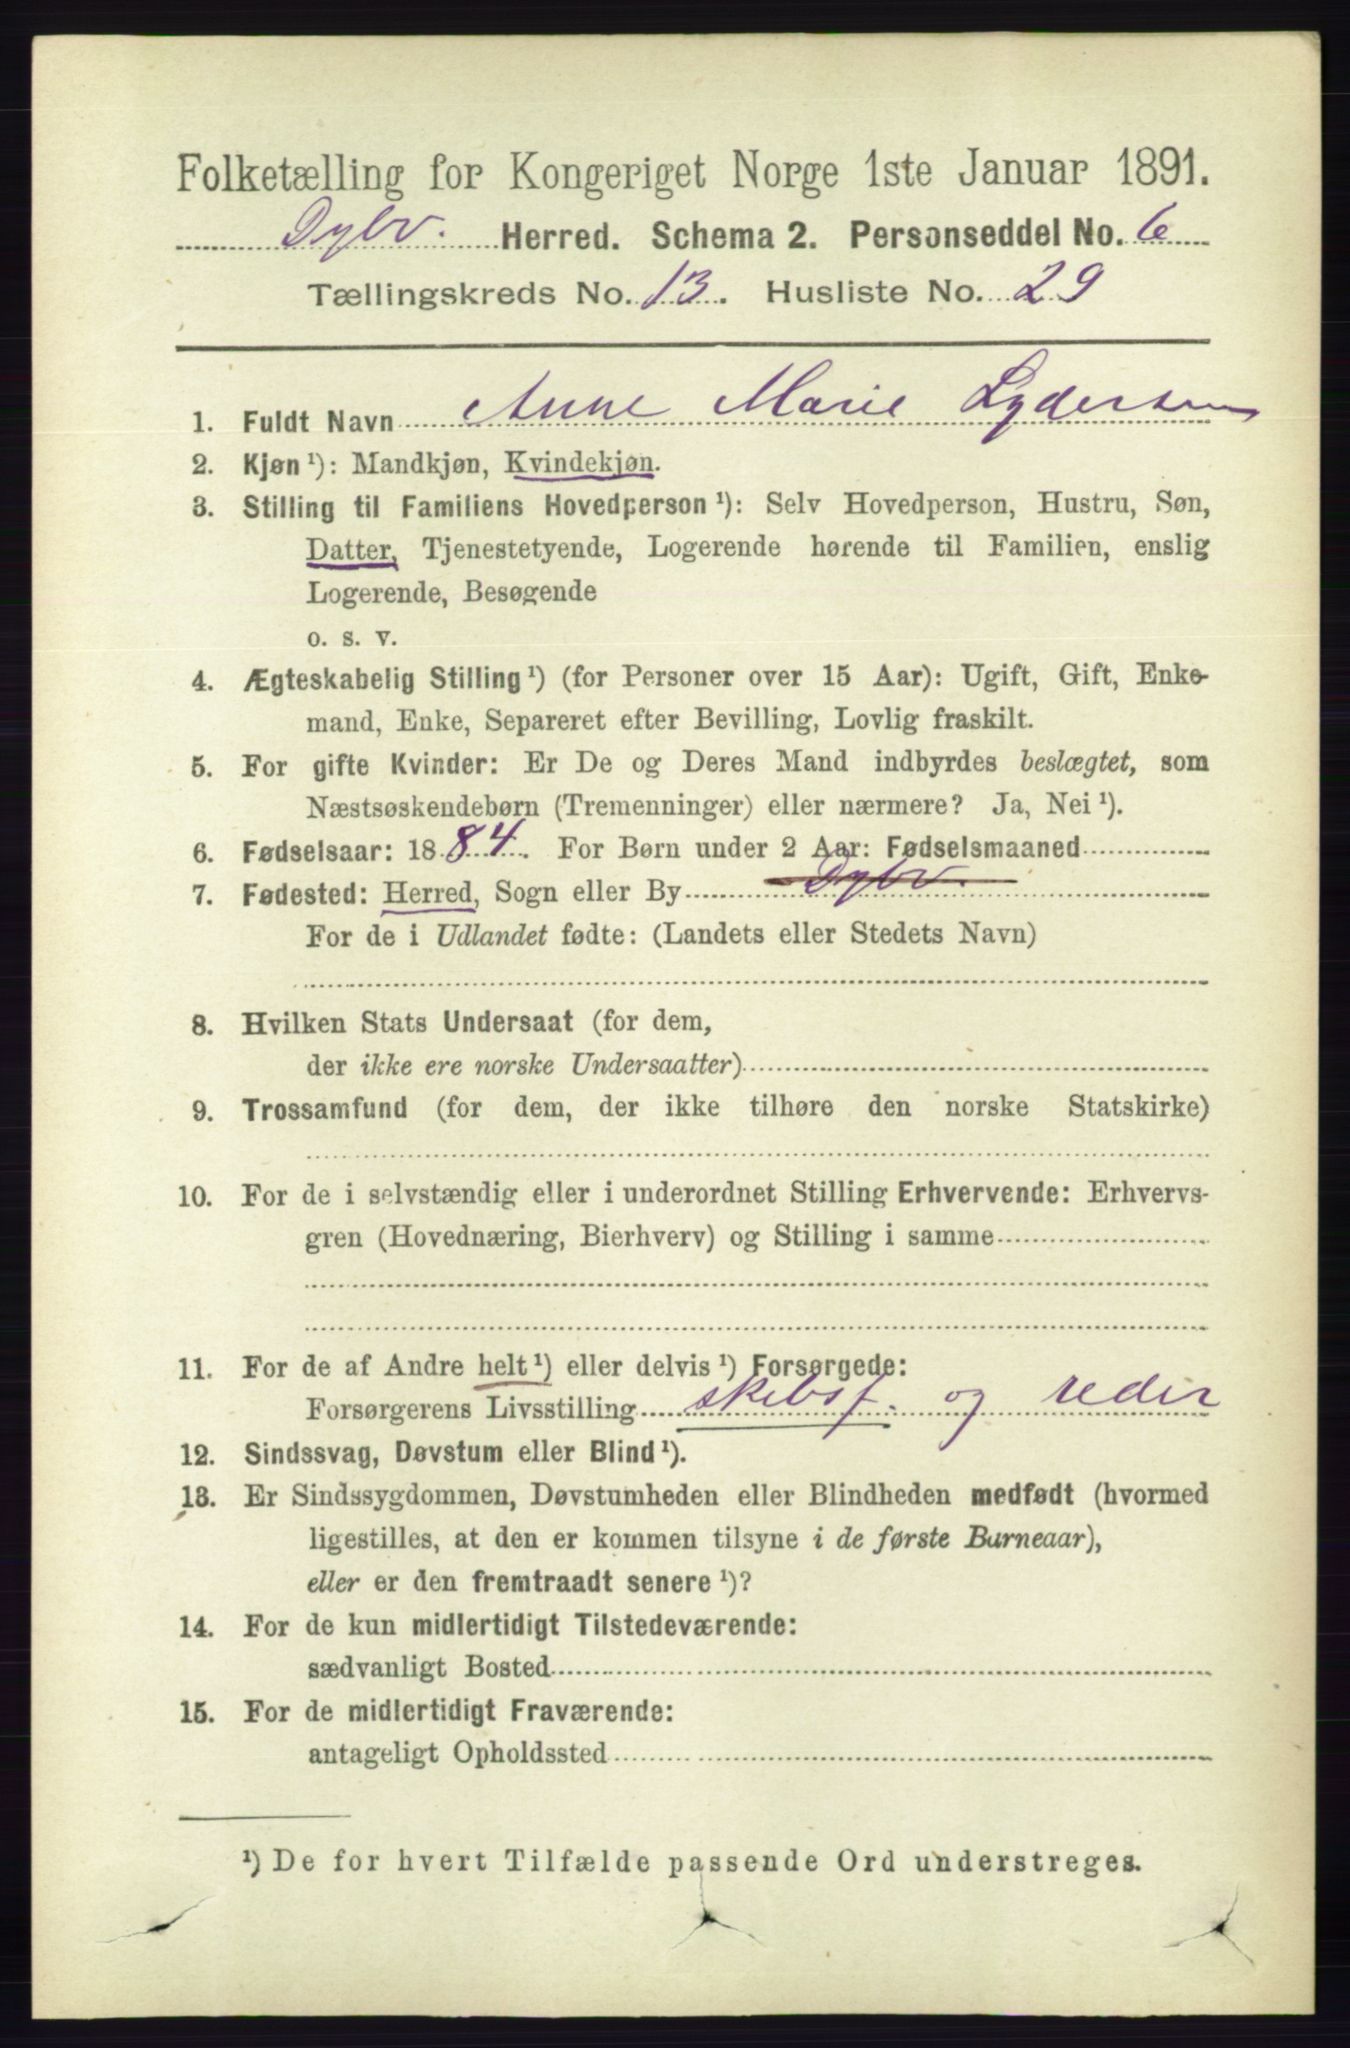 Folketælling for Kongeriget Norge 1ste Januar 1891.
Dybv. Herred. Schema 2. Personseddel No. 6
Tællingskreds No. 13. Husliste No. 29
1. Fuldt Navn Anne Marie Lydersen
2. Kjøn ¹): Mandkjøn, Kvindekjøn.
3. Stilling til Familiens Hovedperson ¹): Selv Hovedperson, Hustru, Søn,
Datter, Tjenestetyende, Logerende hørende til Familien, enslig
Logerende, Besøgende
o. s. v.
4. Ægteskabelig Stilling ¹) (for Personer over 15 Aar): Ugift, Gift, Enke-
mand, Enke, Separeret efter Bevilling, Lovlig fraskilt.
5. For gifte Kvinder: Er De og Deres Mand indbyrdes beslægtet, som
Næstsøskendebørn (Tremenninger) eller nærmere? Ja, Nei ¹).
6. Fødselsaar: 1884. For Børn under 2 Aar: Fødselsmaaned
7. Fødested: Herred, Sogn eller By Dybv.
For de i Udlandet fødte: (Landets eller Stedets Navn)
8. Hvilken Stats Undersaat (for dem,
der ikke ere norske Undersaatter)
9. Trossamfund (for dem, der ikke tilhøre den norske Statskirke)
10. For de i selvstændig eller i underordnet Stilling Erhvervende: Erhvervs-
gren (Hovednæring, Bierhverv) og Stilling i samme
11. For de af Andre helt ¹) eller delvis ¹) Forsørgede:
Forsørgerens Livsstilling skibsf. og reder
12. Sindssvag, Døvstum eller Blind ¹).
13. Er Sindssygdommen, Døvstumheden eller Blindheden medfødt (hvormed
ligestilles, at den er kommen tilsyne i de første Barneaar),
eller er den fremtraadt senere ¹)?
14. For de kun midlertidigt Tilstedeværende:
sædvanligt Bosted
15. For de midlertidigt Fraværende:
antageligt Opholdssted
¹) De for hvert Tilfælde passende Ord understreges.